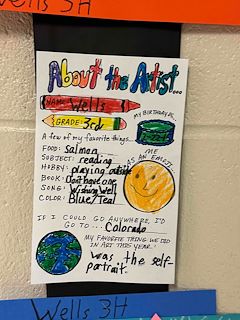 Wells 3H
About the Artist...
NAME: Wells
GRADE: 3rd
MY BIRTHDAY IS...
A few of my favorite things...
FOOD: Salmon
SUBJECT: reading
HOBBY: playing outside
BOOK: Dont have one
SONG: Wishing Well
COLOR: Blue/Teal
ME
AS AN EMOJI...
IF I COULD GO ANYWHERE, I'D
GO TO... Colorado
MY FAVORITE THING WE DID
IN ART THIS YEAR...
was the self-
portrait.
Wells 3H